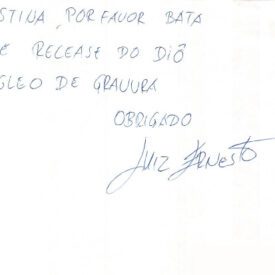 STINA, POR FAVOR BATA
E RELEASE DO DIÔ
GLEO DE GRAVURA
OBRIGADO
LUIZ ERNESTO